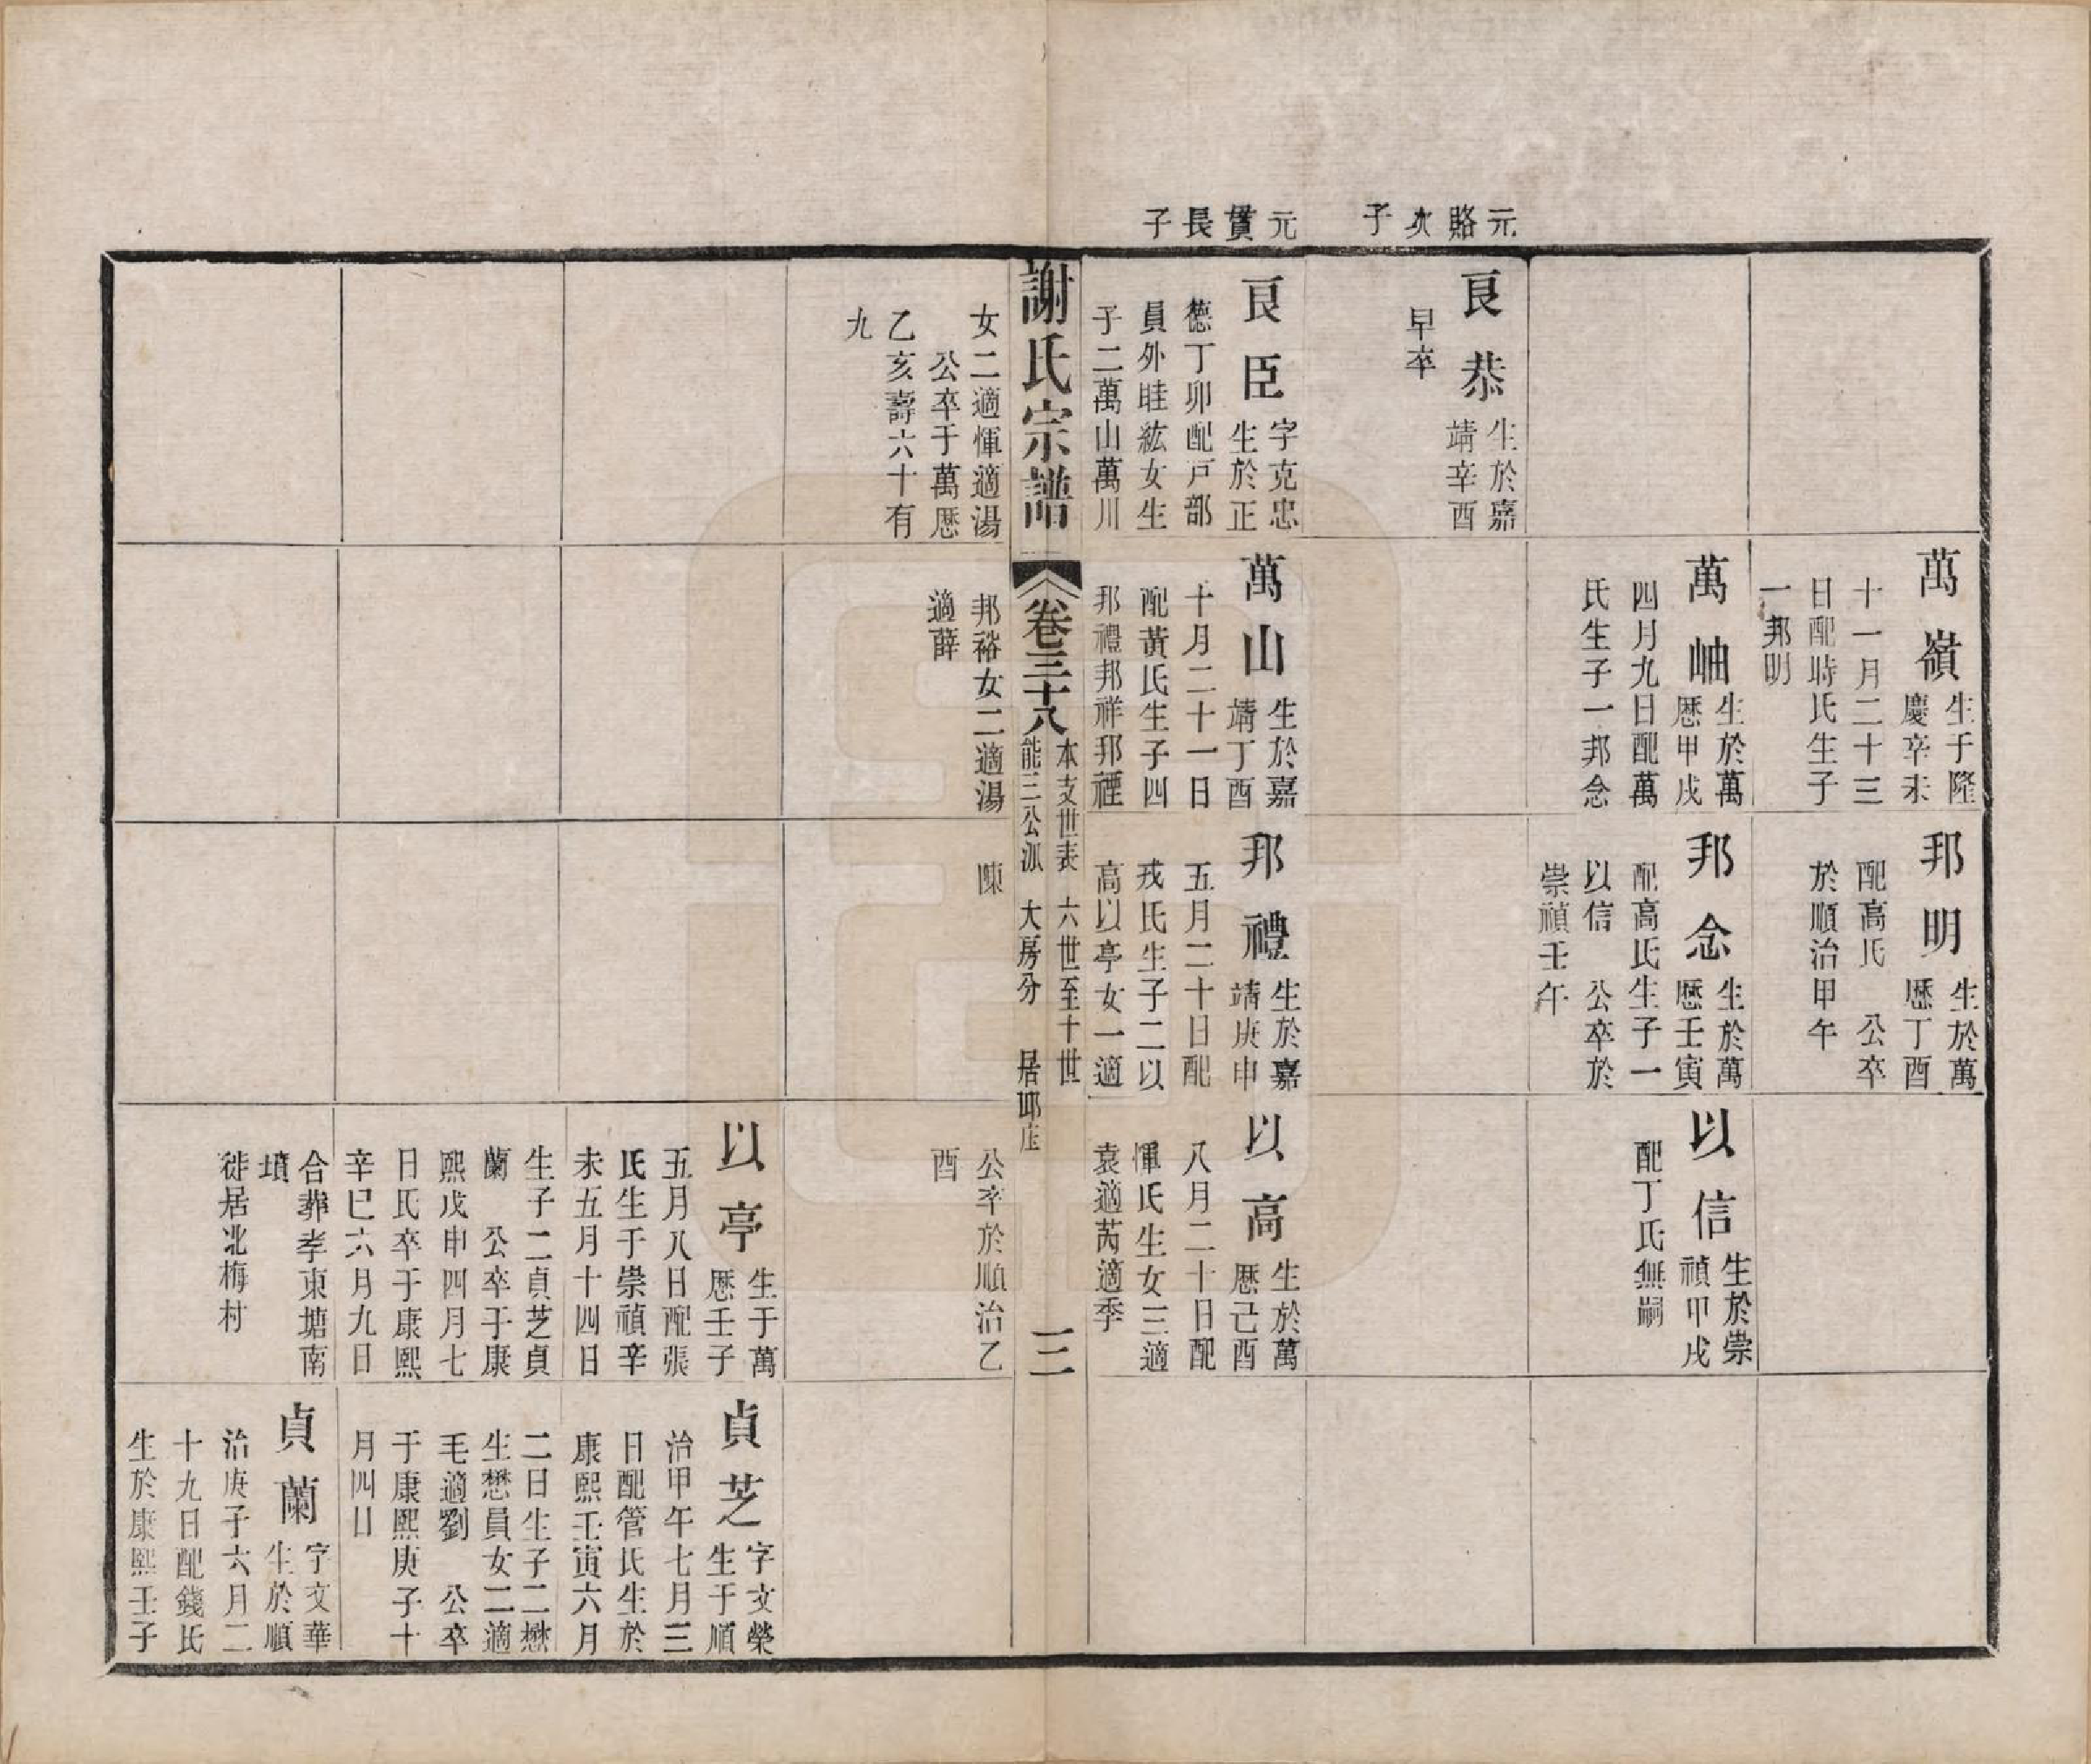 萬嶺
生于隆
慶辛未
十一月二十三
日配時氏生子
一邦明
邦明
生於萬
歷丁酉
配高氏　公卒
於順治甲午
萬岫
生於萬
歷甲戌
四月九日配萬
氏生子一邦念
邦念
生於萬
歷壬寅
配高氏生子一
以信　公卒於
崇禎壬午
以信
生於崇
禎甲戌
配丁氏無嗣
元賂次子
良恭
生於嘉
靖辛酉
早卒
元貰長子
良臣
字克忠
生於正
德丁卯配戸部
員外眭紘女生
子二萬山萬川
萬山
生於嘉
靖丁酉
十月二十一日
配黃氏生子四
邦禮邦祥邦禋
邦禮
生於嘉
靖庚申
五月二十日配
戎氏生子二以
高以亭女一適
以高
生於萬
歷己酉
八月二十日配
惲氏生女三適
袁適芮適季
謝氏宗譜
卷三十八
本支世表　六世至十世
能三公派　大房分　居邱庄
三
女二適惲適湯
公卒于萬歷
乙亥壽六十有
九
邦裕女二適湯
適薛
陳
公卒於順治乙
酉
以亭
生于萬
歷壬子
五月八日配張
氏生于崇禎辛
未五月十四日
生子二貞芝貞
蘭　公卒于康
熙戊申四月七
日氏卒于康熙
辛巳六月九日
合葬孝東塘南
墳
徙居北梅村
貞芝
字文榮
生于順
治甲午七月三
日配管氏生於
康熙壬寅六月
二日生子二懋
生懋員女二適
毛適劉　公卒
于康熙庚子十
月四日
貞蘭
字文華
生於順
治庚子六月二
十九日配錢氏
生於康熙壬子